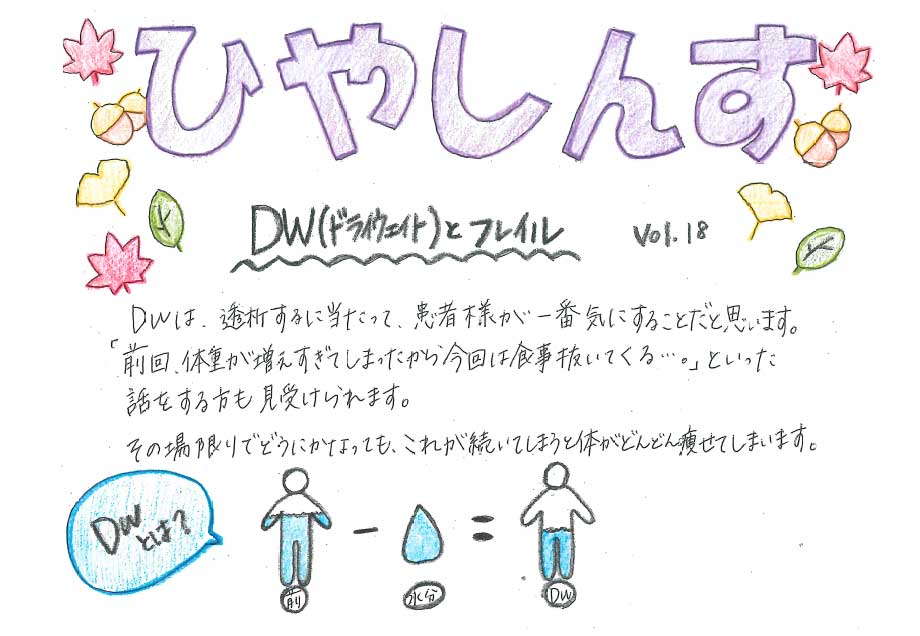 ひやしんす
DW(ドライウェイト)とフレイル
Vol.18
DWは、透析するに当たって、患者様が一番気にすることだと思います。
「前回、体重が増えすぎてしまったから今回は食事抜いてくる…。」といった
話をする方も見受けられます。
その場限りでどうにかなっても、これが続いてしまうと体がどんどん痩せてしまいます。
DW
とは?
前
水分
DW